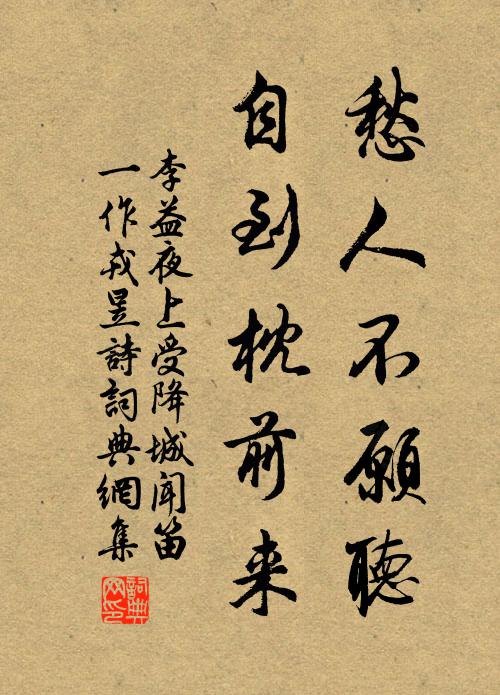 愁人不願聽
自到枕前来
李益夜上受降城聞笛
一作戎昱詩詞典網集
詞典网印